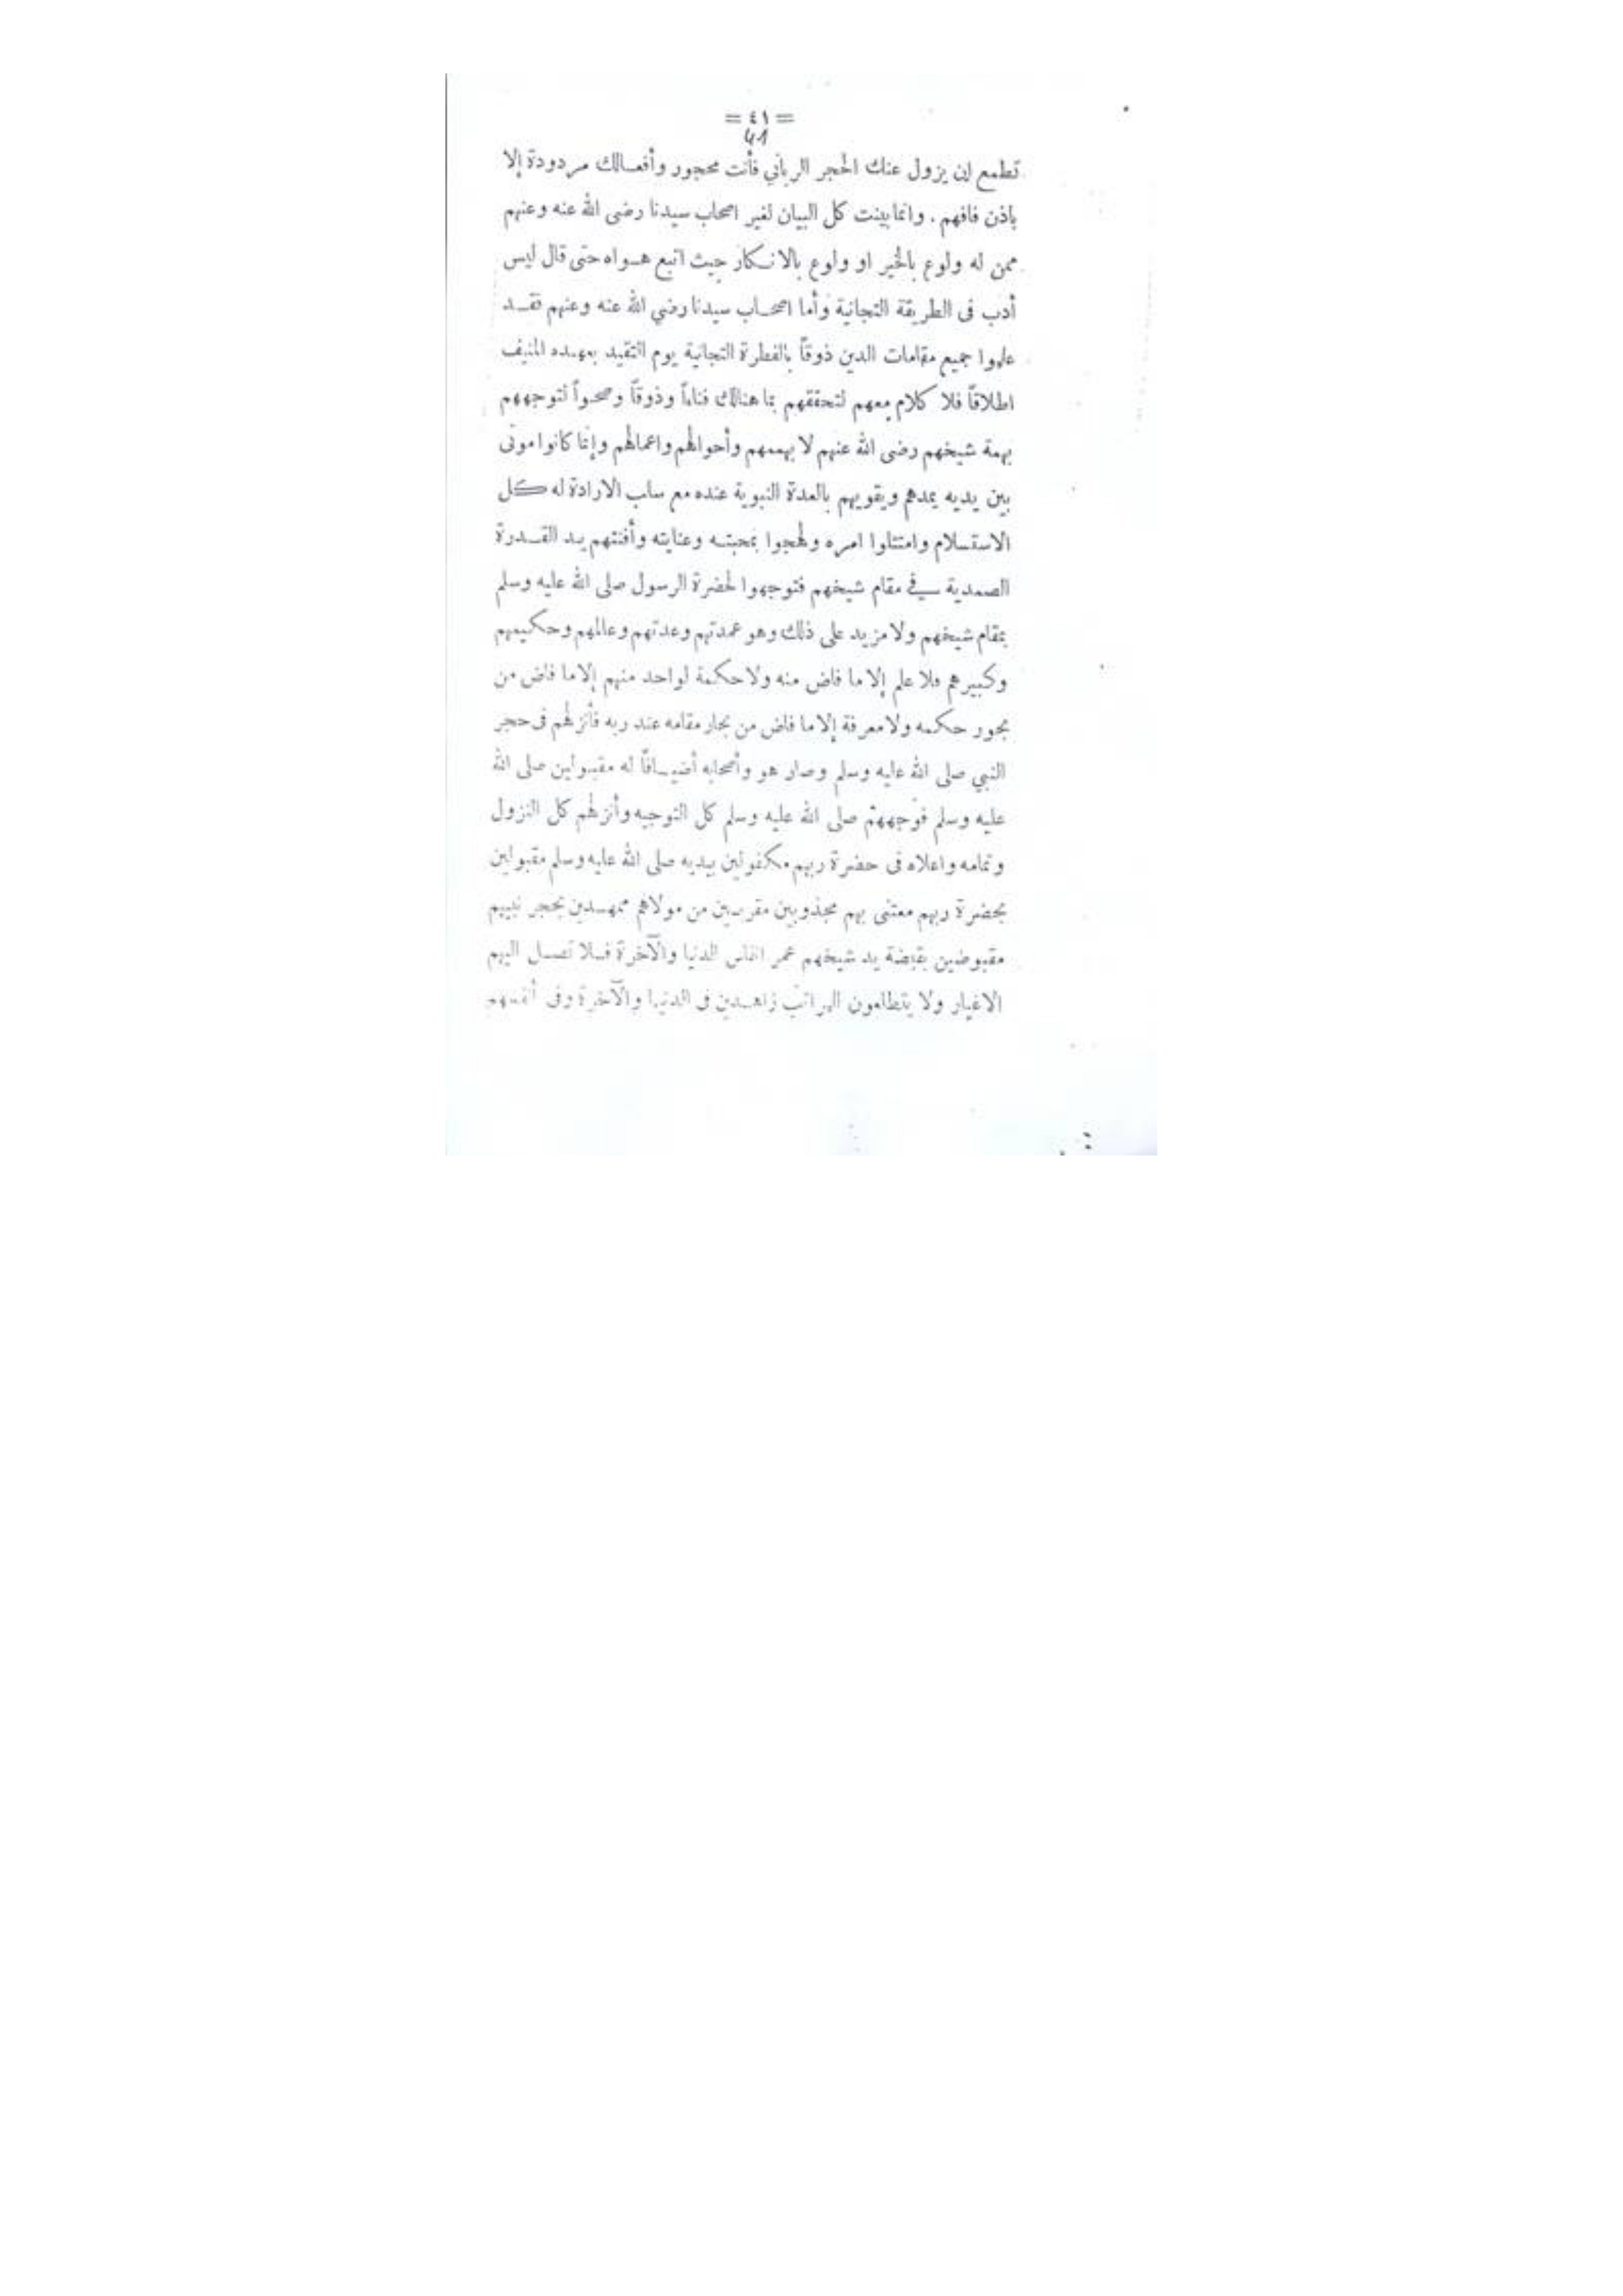 = ٤١ =
41
تطمع ان يزول عنك الحجر الرباني فأنت محجور وأفعالك مردودة إلا
باذن فافهم . وانما بينت كل البيان لغير اصحاب سيدنا رضى الله عنه وعنهم
ممن له ولوع بالخير او ولوع بالانكار حيث اتبع هواه حتى قال ليس
أدب فى الطريقة التجانية وأما اصحاب سيدنا رضي الله عنه وعنهم فقد
علموا جميع مقامات الدين ذوقاً بالفطرة التجانية يوم التقيد بعهده المنيف
اطلاقاً فلا كلام معهم لتحققهم بما هنالك فناءاً وذوقاً وصحواً لتوجههم
بهمة شيخهم رضى الله عنهم لا بهممهم وأحوالهم واعمالهم وإنما كانوا موتى
بين يديه يمدهم ويقويهم بالعدة النبوية عنده مع سلب الارادة له كل
الاستسلام وامتثلوا امره ولهجوا بمحبته وعنايته وأفنتهم يد القدرة
الصمدية في مقام شيخهم فتوجهوا لحضرة الرسول صلى الله عليه وسلم
بمقام شيخهم ولا مزيد على ذلك وهو عمدتهم وعدتهم وعالمهم وحكيمهم
وكبيرهم فلا علم إلا ما فاض منه ولا حكمة لواحد منهم إلا ما فاض من
بحور حكمه ولا معرفة إلا ما فاض من بحار مقامه عند ربه فأنزلهم فى حجر
النبي صلى الله عليه وسلم وصار هو وأصحابه أضيافاً له مقبولين صلى الله
عليه وسلم فوجههم صلى الله عليه وسلم كل التوجيه وأنزلهم كل النزول
وتمامه واعلاه فى حضرة ربهم مكفولين بيديه صلى الله عليه وسلم مقبولين
بحضرة ربهم معتنى بهم مجذوبين مقربين من مولاهم ممهدين بحجر نبيهم
مقبوضين بقبضة يد شيخهم عمر الدنيا والآخرة فلا تصل اليهم
الاغيار ولا يتطلعون المراتب زاهدين فى الدنيا والآخرة وفى أنفسهم